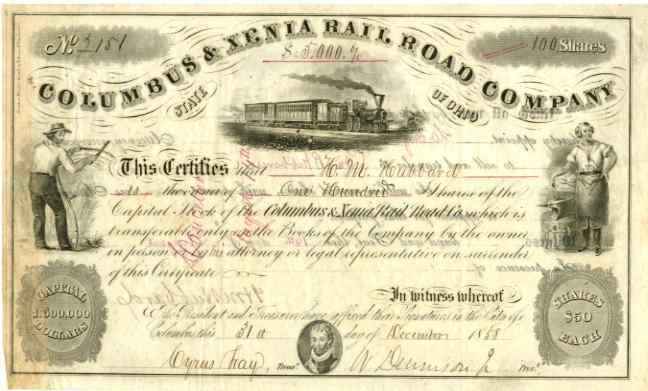 No. 3181
$5,000.%
100 Shares
COLUMBUS & XENIA RAIL ROAD COMPANY
STATE OF OHIO
This Certifies that H. M. Hubbard
is the owner of One Hundred Shares of the
Capital Stock of the Columbus & Xenia Rail Road Company which is
transferable only on the Books of the Company by the owner
in person or by his attorney or legal representative on surrender
of this Certificate
In witness whereof
the President and Treasurer have affixed their Signatures in the City of
Columbus this 31st day of December 1868
CAPITAL
DOLLARS
SHARES
$50
EACH
Treasr.